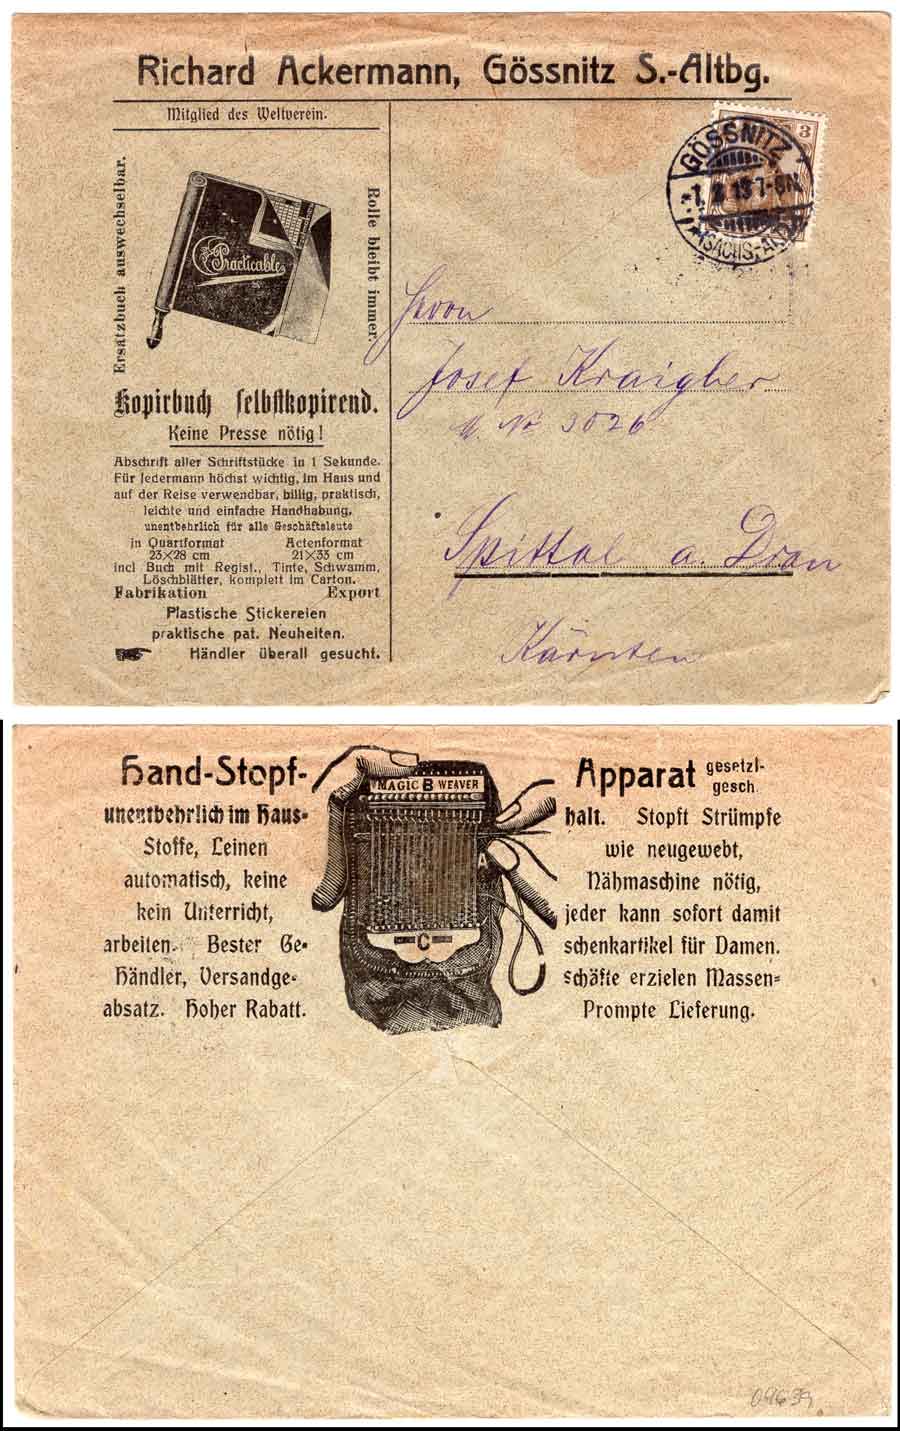 Richard Ackermann, Gössnitz S.-Altbg.
Mitglied des Weltverein.
Ersatzbuch auswechselbar.
Practicable
Rolle bleibt immer.
Kopirbuch selbstkopirend.
Keine Presse nötig!
Abschrift aller Schriftstücke in 1 Sekunde.
Für Jedermann höchst wichtig, im Haus und
auf der Reise verwendbar, billig, praktisch,
leichte und einfache Handhabung,
unentbehrlich für alle Geschäftsleute
in Quartformat Actenformat
23×28 cm 21×33 cm
incl Buch mit Regist., Tinte, Schwamm,
Löschblätter, komplett im Carton.
Fabrikation Export
Plastische Stickereien
praktische pat. Neuheiten.
Händler überall gesucht.
3
GÖSSNITZ
(SACHS.-
Herrn
Josef Kraigher
No 3026
Spittal a. Drau
Kärnten
Hand-Stopf- Apparat gesetzl-
gesch.
MAGIC B WEAVER
A
C
unentbehrlich im Haus- halt. Stopft Strümpfe
Stoffe, Leinen wie neugewebt,
automatisch, keine Nähmaschine nötig,
kein Unterricht, jeder kann sofort damit
arbeiten. Bester Ge- schenkartikel für Damen.
Händler, Versandge- schäfte erzielen Massen-
absatz. Hoher Rabatt. Prompte Lieferung.